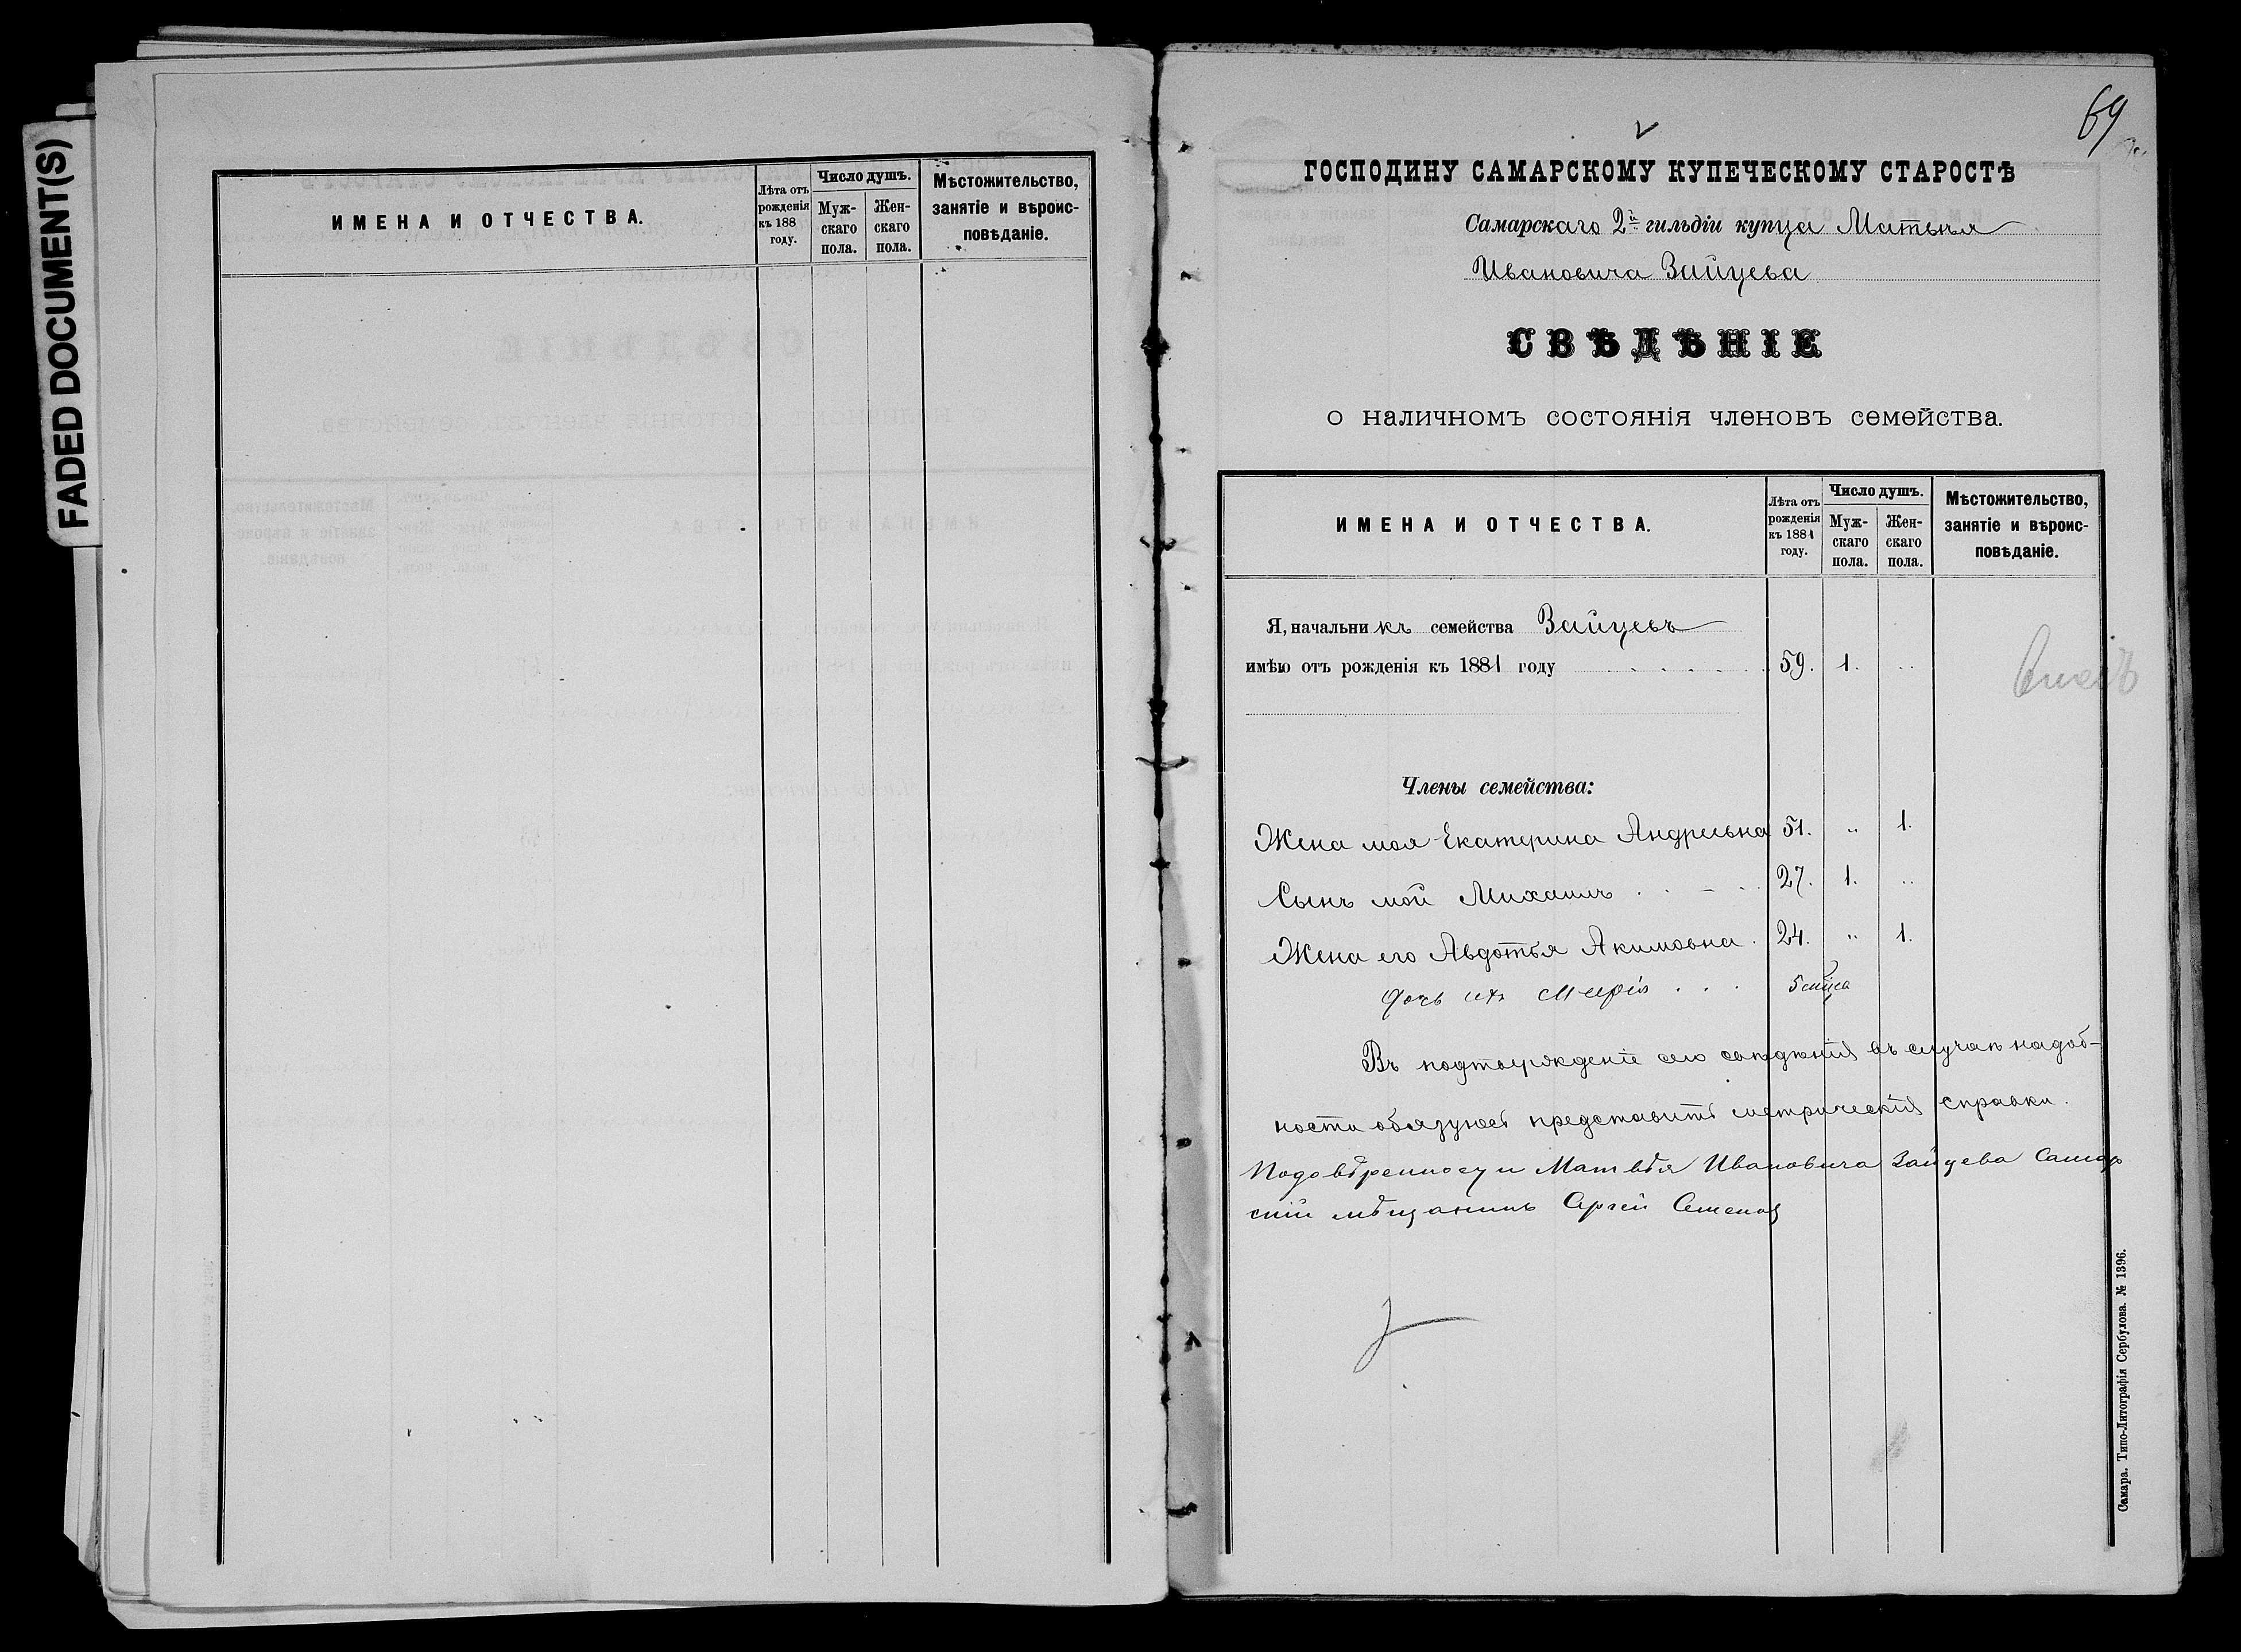 FADED DOCUMENT(S)
ИМЕНА И ОТЧЕСТВА.
Лѣта отъ рожденія къ 188 году.
Число душъ.
Муж-скаго пола.
Жен-скаго пола.
Мѣстожительство, занятіе и вѣроис-повѣданіе.
69
ГОСПОДИНУ САМАРСКОМУ КУПЕЧЕСКОМУ СТАРОСТѢ
Самарскаго 2й гильдіи купца Матвѣя
Ивановича Зайцева
СВѢДѢНІЕ
о наличномъ состоянія членовъ семейства.
ИМЕНА И ОТЧЕСТВА.
Лѣта отъ рожденія къ 1881 году.
Число душъ.
Муж-скаго пола.
Жен-скаго пола.
Мѣстожительство, занятіе и вѣроис-повѣданіе.
Я, начальникъ семейства Зайцевъ
имѣю отъ рожденія къ 1881 году 59. 1. ..
Члены семейства:
Жена моя Екатерина Андреевна 51. .. 1.
Сынъ мой Михаилъ 27. 1. ..
Жена его Авдотья Акимовна. 24. .. 1.
Дочь ихъ Марія . . . 5
Въ подтвержденіе сего свѣдѣнія въ случаѣ надоб-
ности обязуюсь представить метрическія справки.
Подовѣренности Матвѣя Ивановича Зайцева Самар
скій мѣщанинъ Сергей Семенов
Самара. Типо-Литографія Сербулова. № 1396.